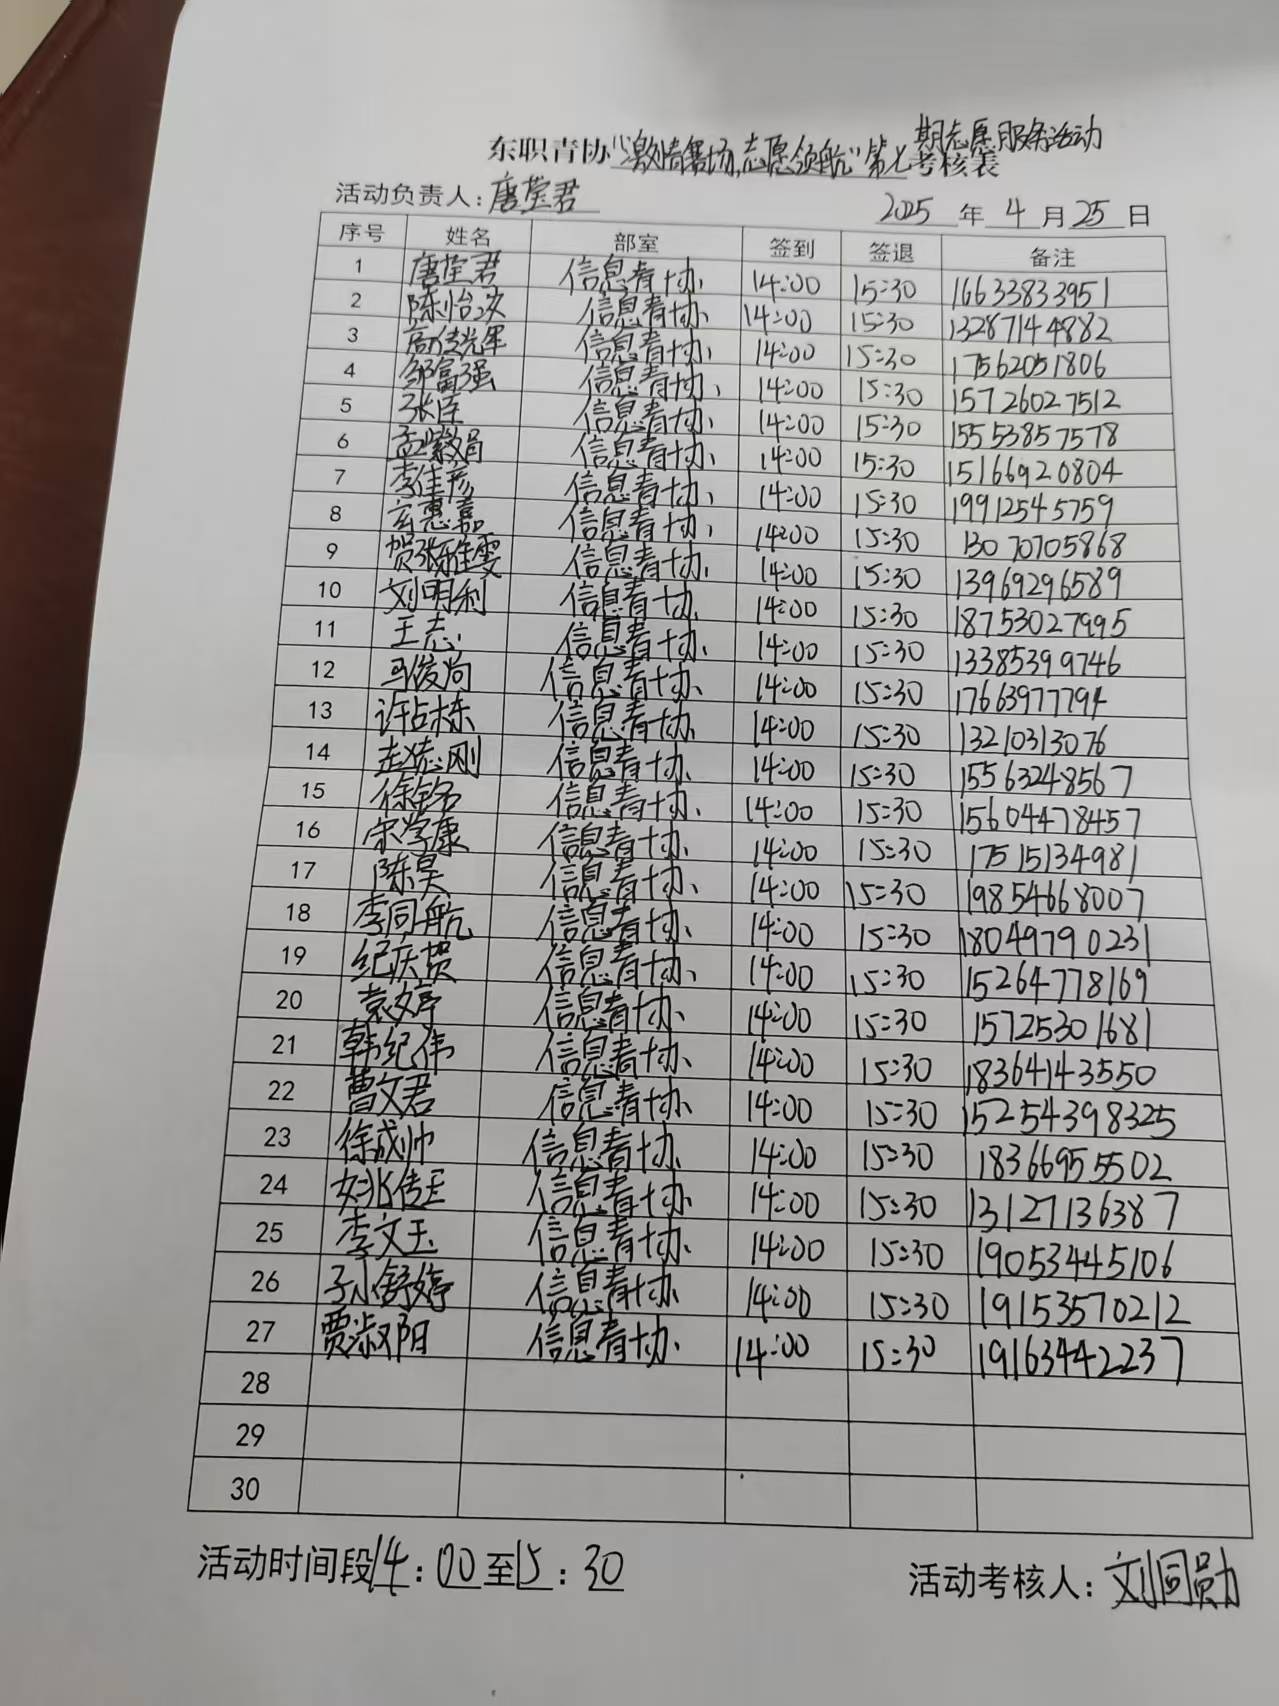 期志愿服务活动
东职青协"激情赛场,志愿领航"第七考核表
活动负责人:唐莹君 2025年4月25日
序号 姓名 部室 签到 签退 备注
1 唐莹君 信息青协 14:00 15:30 16633833951
2 陈怡次 信息青协 14:00 15:30 13287144882
3 信息青协 14:00 15:30 17562051806
4 邹富强 信息青协 14:00 15:30 15726027512
5 张连 信息青协 14:00 15:30 15553857578
6 信息青协 14:00 15:30 15166920804
7 李佳彦 信息青协 14:00 15:30 19912545759
8 玄惠嘉 信息青协 14:00 15:30 13070705868
9 贺张雅雯 信息青协 14:00 15:30 13969296589
10 刘明利 信息青协 14:00 15:30 18753027995
11 王志 信息青协 14:00 15:30 13385399746
12 马俊尚 信息青协 14:00 15:30 17663977794
13 许占栋 信息青协 14:00 15:30 13210313076
14 赵志刚 信息青协 14:00 15:30 15563248567
15 信息青协 14:00 15:30 15604478457
16 宋学康 信息青协 14:00 15:30 17515134981
17 陈昊 信息青协 14:00 15:30 19854668007
18 李同航 信息青协 14:00 15:30 18049790231
19 纪庆贺 信息青协 14:00 15:30 15264778169
20 袁婷 信息青协 14:00 15:30 15725301681
21 韩纪伟 信息青协 14:00 15:30 18364143550
22 曹文君 信息青协 14:00 15:30 15254398325
23 徐成帅 信息青协 14:00 15:30 18366955502
24 姚传玉 信息青协 14:00 15:30 13127136387
25 李文玉 信息青协 14:00 15:30 19053445106
26 孙舒婷 信息青协 14:00 15:30 19153570212
27 贾淑阳 信息青协 14:00 15:30 19163442237
28
29
30
活动时间段14:00至15:30 活动考核人:刘同勋